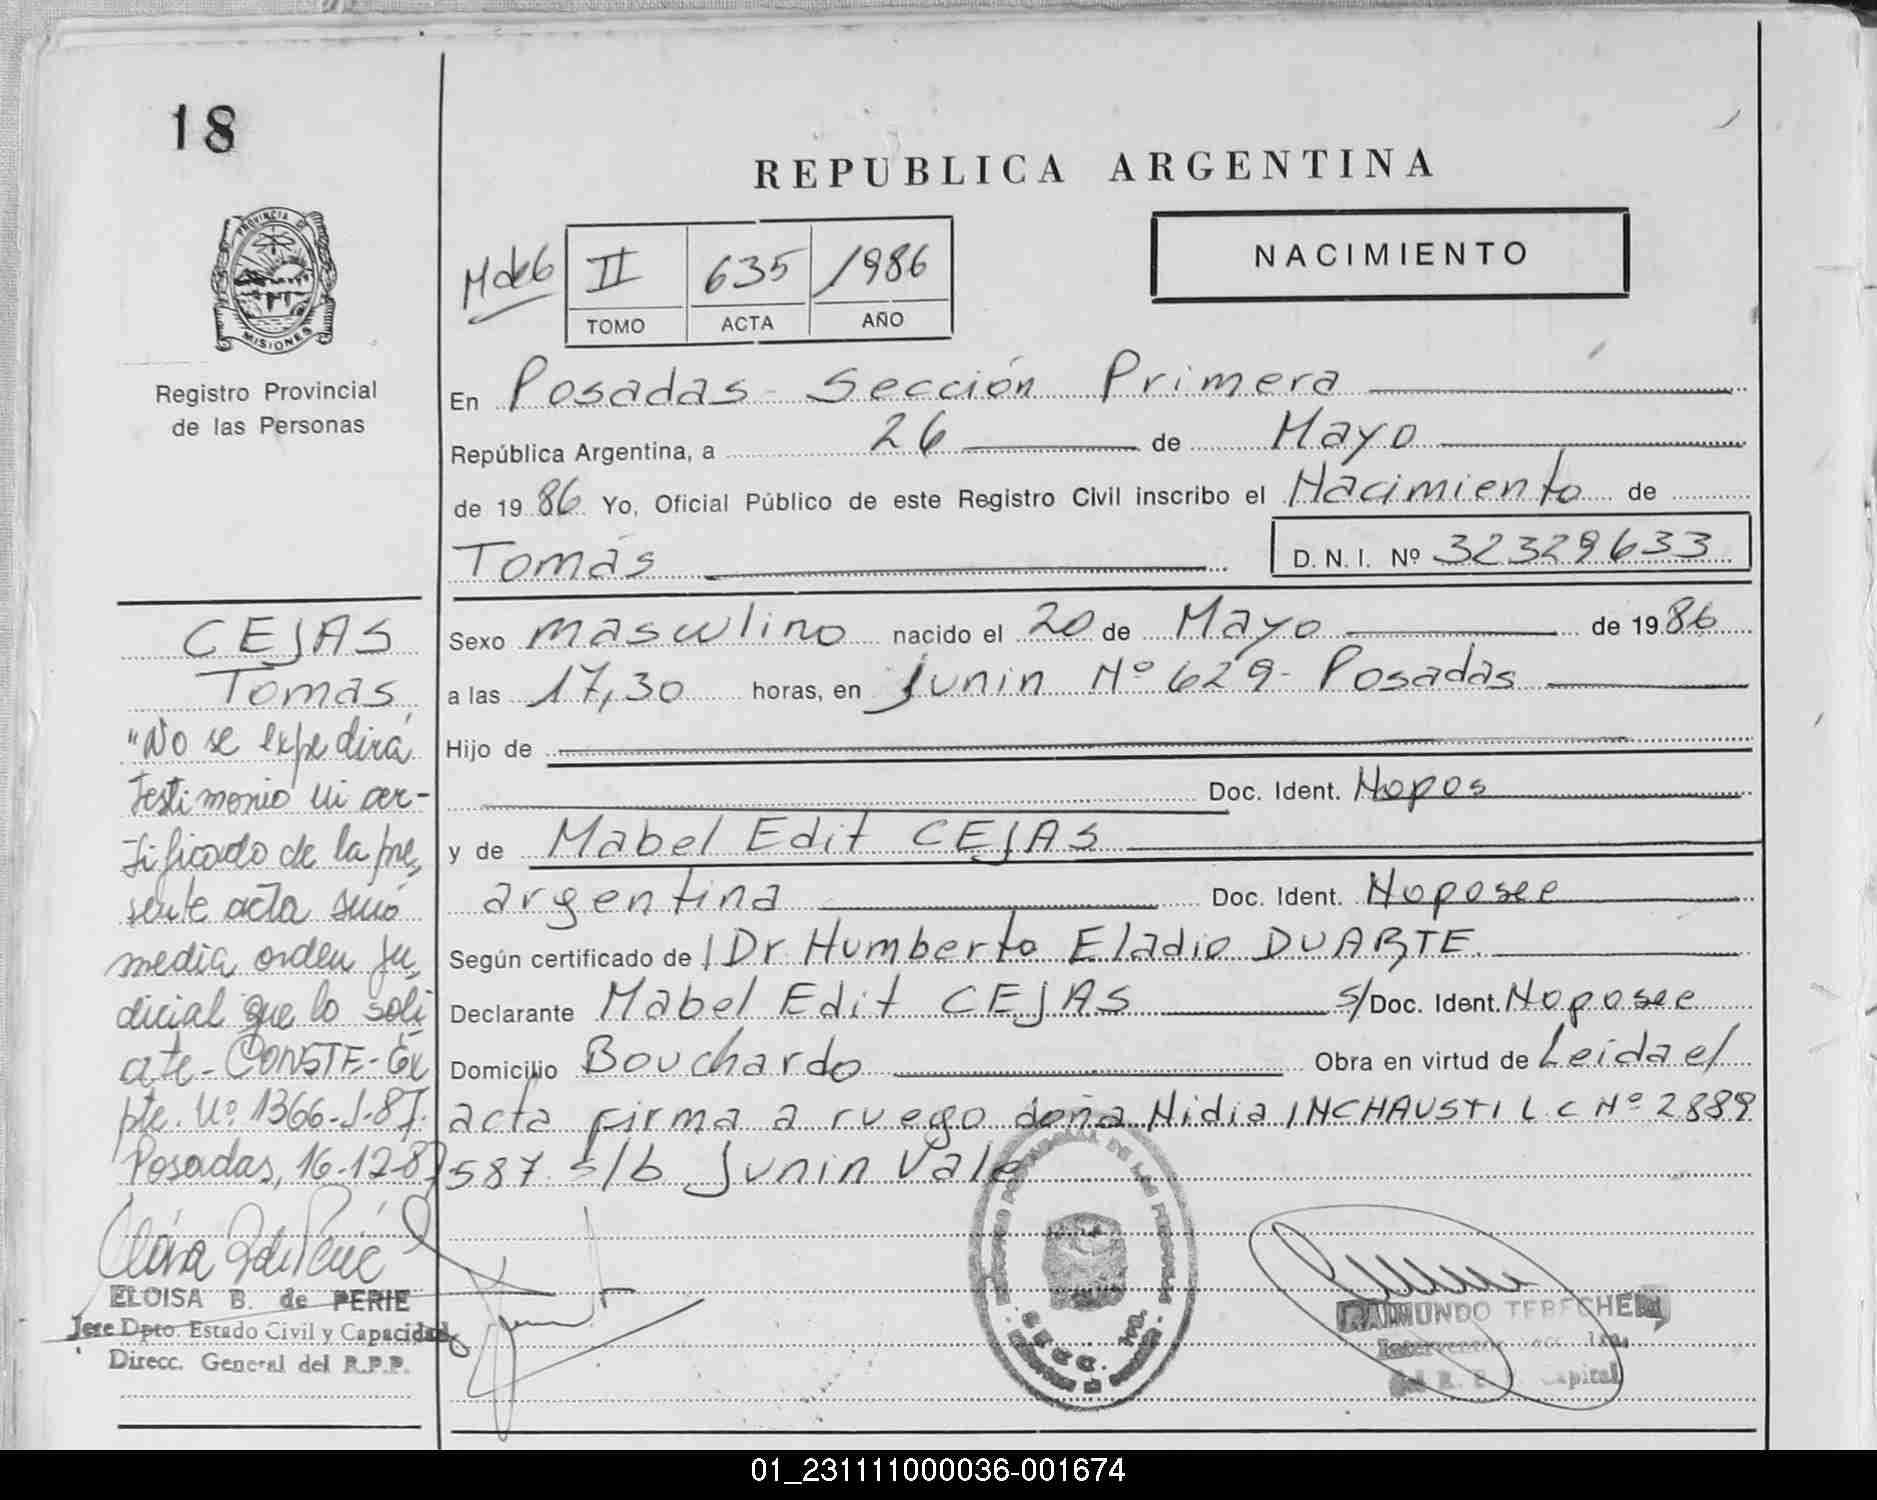 18
REPUBLICA ARGENTINA
PROVINCIA DE
MISIONES
Registro Provincial
de las Personas
II 635 1986
TOMO ACTA AÑO
NACIMIENTO
En Posadas - Sección Primera
República Argentina, a 26 de Mayo
de 1986 Yo, Oficial Público de este Registro Civil inscribo el Nacimiento de
Tomás
D. N. I. Nº 32329633
Sexo masculino nacido el 20 de Mayo de 1986
a las 17,30 horas, en Junin Nº 629 - Posadas
Hijo de
Doc. Ident. Nopos
y de Mabel Edit CEJAS
argentina Doc. Ident. Noposee
Según certificado de Dr. Humberto Eladio DUARTE.
Declarante Mabel Edit CEJAS s/Doc. Ident. Noposee
Domicilio Bouchardo Obra en virtud de Leida el
acta firma a ruego doña Nidia INCHAUSTI L.C Nº 2889
587 s/b Junin Vale
CEJAS
Tomas
"No se expedirá
Testimonio ni cer-
tificado de la pre,
sente acta sinó
media orden ju,
dicial que lo soli
cite - CONSTE - Ex
pte. Nº 1366-J-87.
Posadas, 16-12-87
ELOISA B. de PERIE
Jefe Dpto. Estado Civil y Capacidad
Direcc. General del R.P.P.
DE LAS PERSONAS
SECC.
RAIMUNDO
01_231111000036-001674